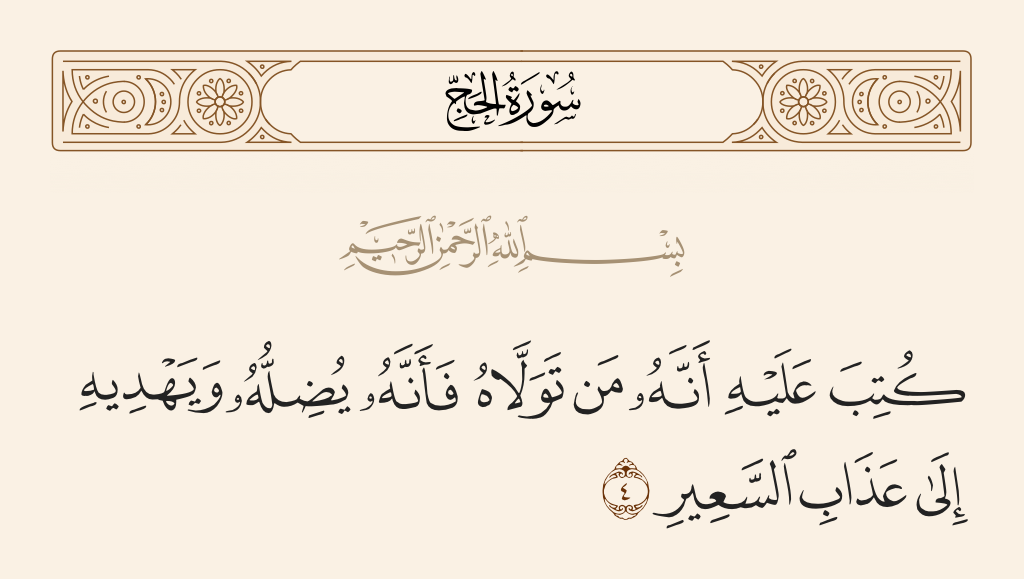 سُورَةُ الحَجِّ
بِسْمِ ٱللَّهِ ٱلرَّحْمَٰنِ ٱلرَّحِيمِ
كُتِبَ عَلَيْهِ أَنَّهُۥ مَن تَوَلَّاهُ فَأَنَّهُۥ يُضِلُّهُۥ وَيَهْدِيهِ
إِلَىٰ عَذَابِ ٱلسَّعِيرِ ٤